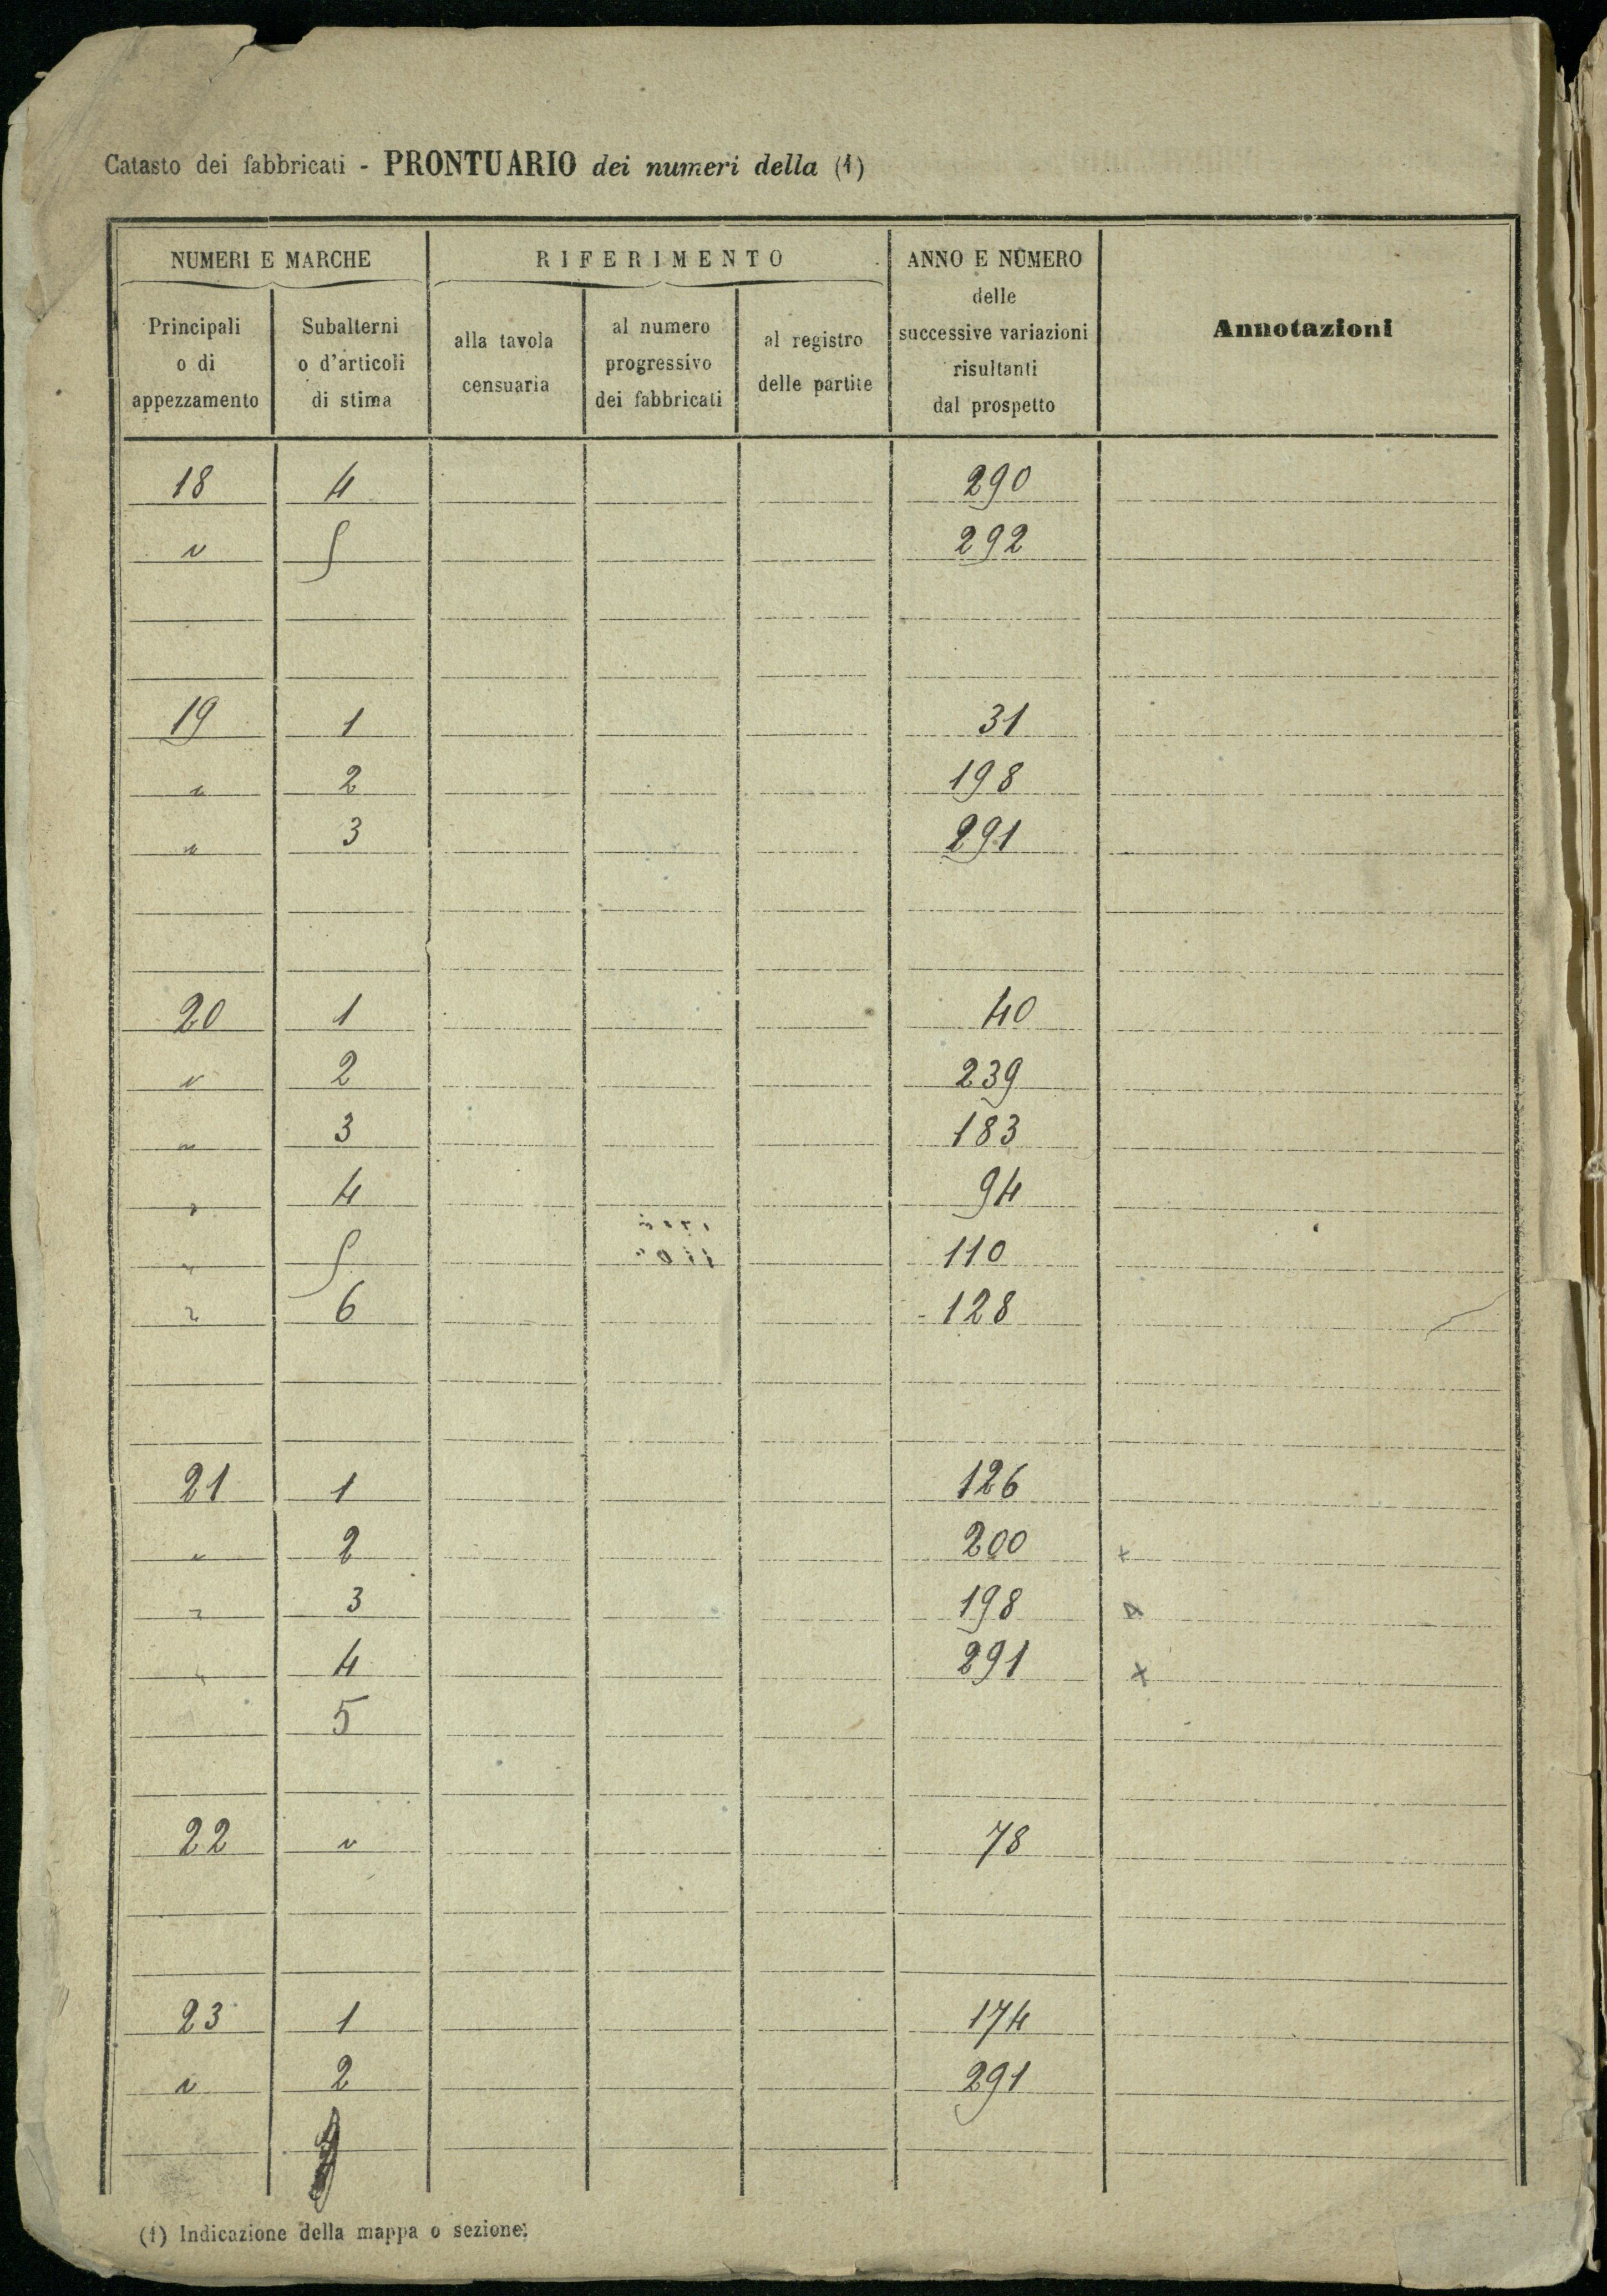 Catasto dei fabbricati - PRONTUARIO dei numeri della (1)
NUMERI E MARCHE RIFERIMENTO ANNO E NUMERO delle successive variazioni risultanti dal prospetto Annotazioni
Principali o di appezzamento Subalterni o d'articoli di stima alla tavola censuaria al numero progressivo dei fabbricati al registro delle partite
18 4 290
" 5 292
19 1 31
" 2 198
" 3 291
20 1 40
" 2 239
" 3 183
" 4 94
" 5 110
" 6 128
21 1 126
" 2 200 x
" 3 198 x
" 4 291 x
5
22 " 78
23 1 174
" 2 291
(1) Indicazione della mappa o sezione.